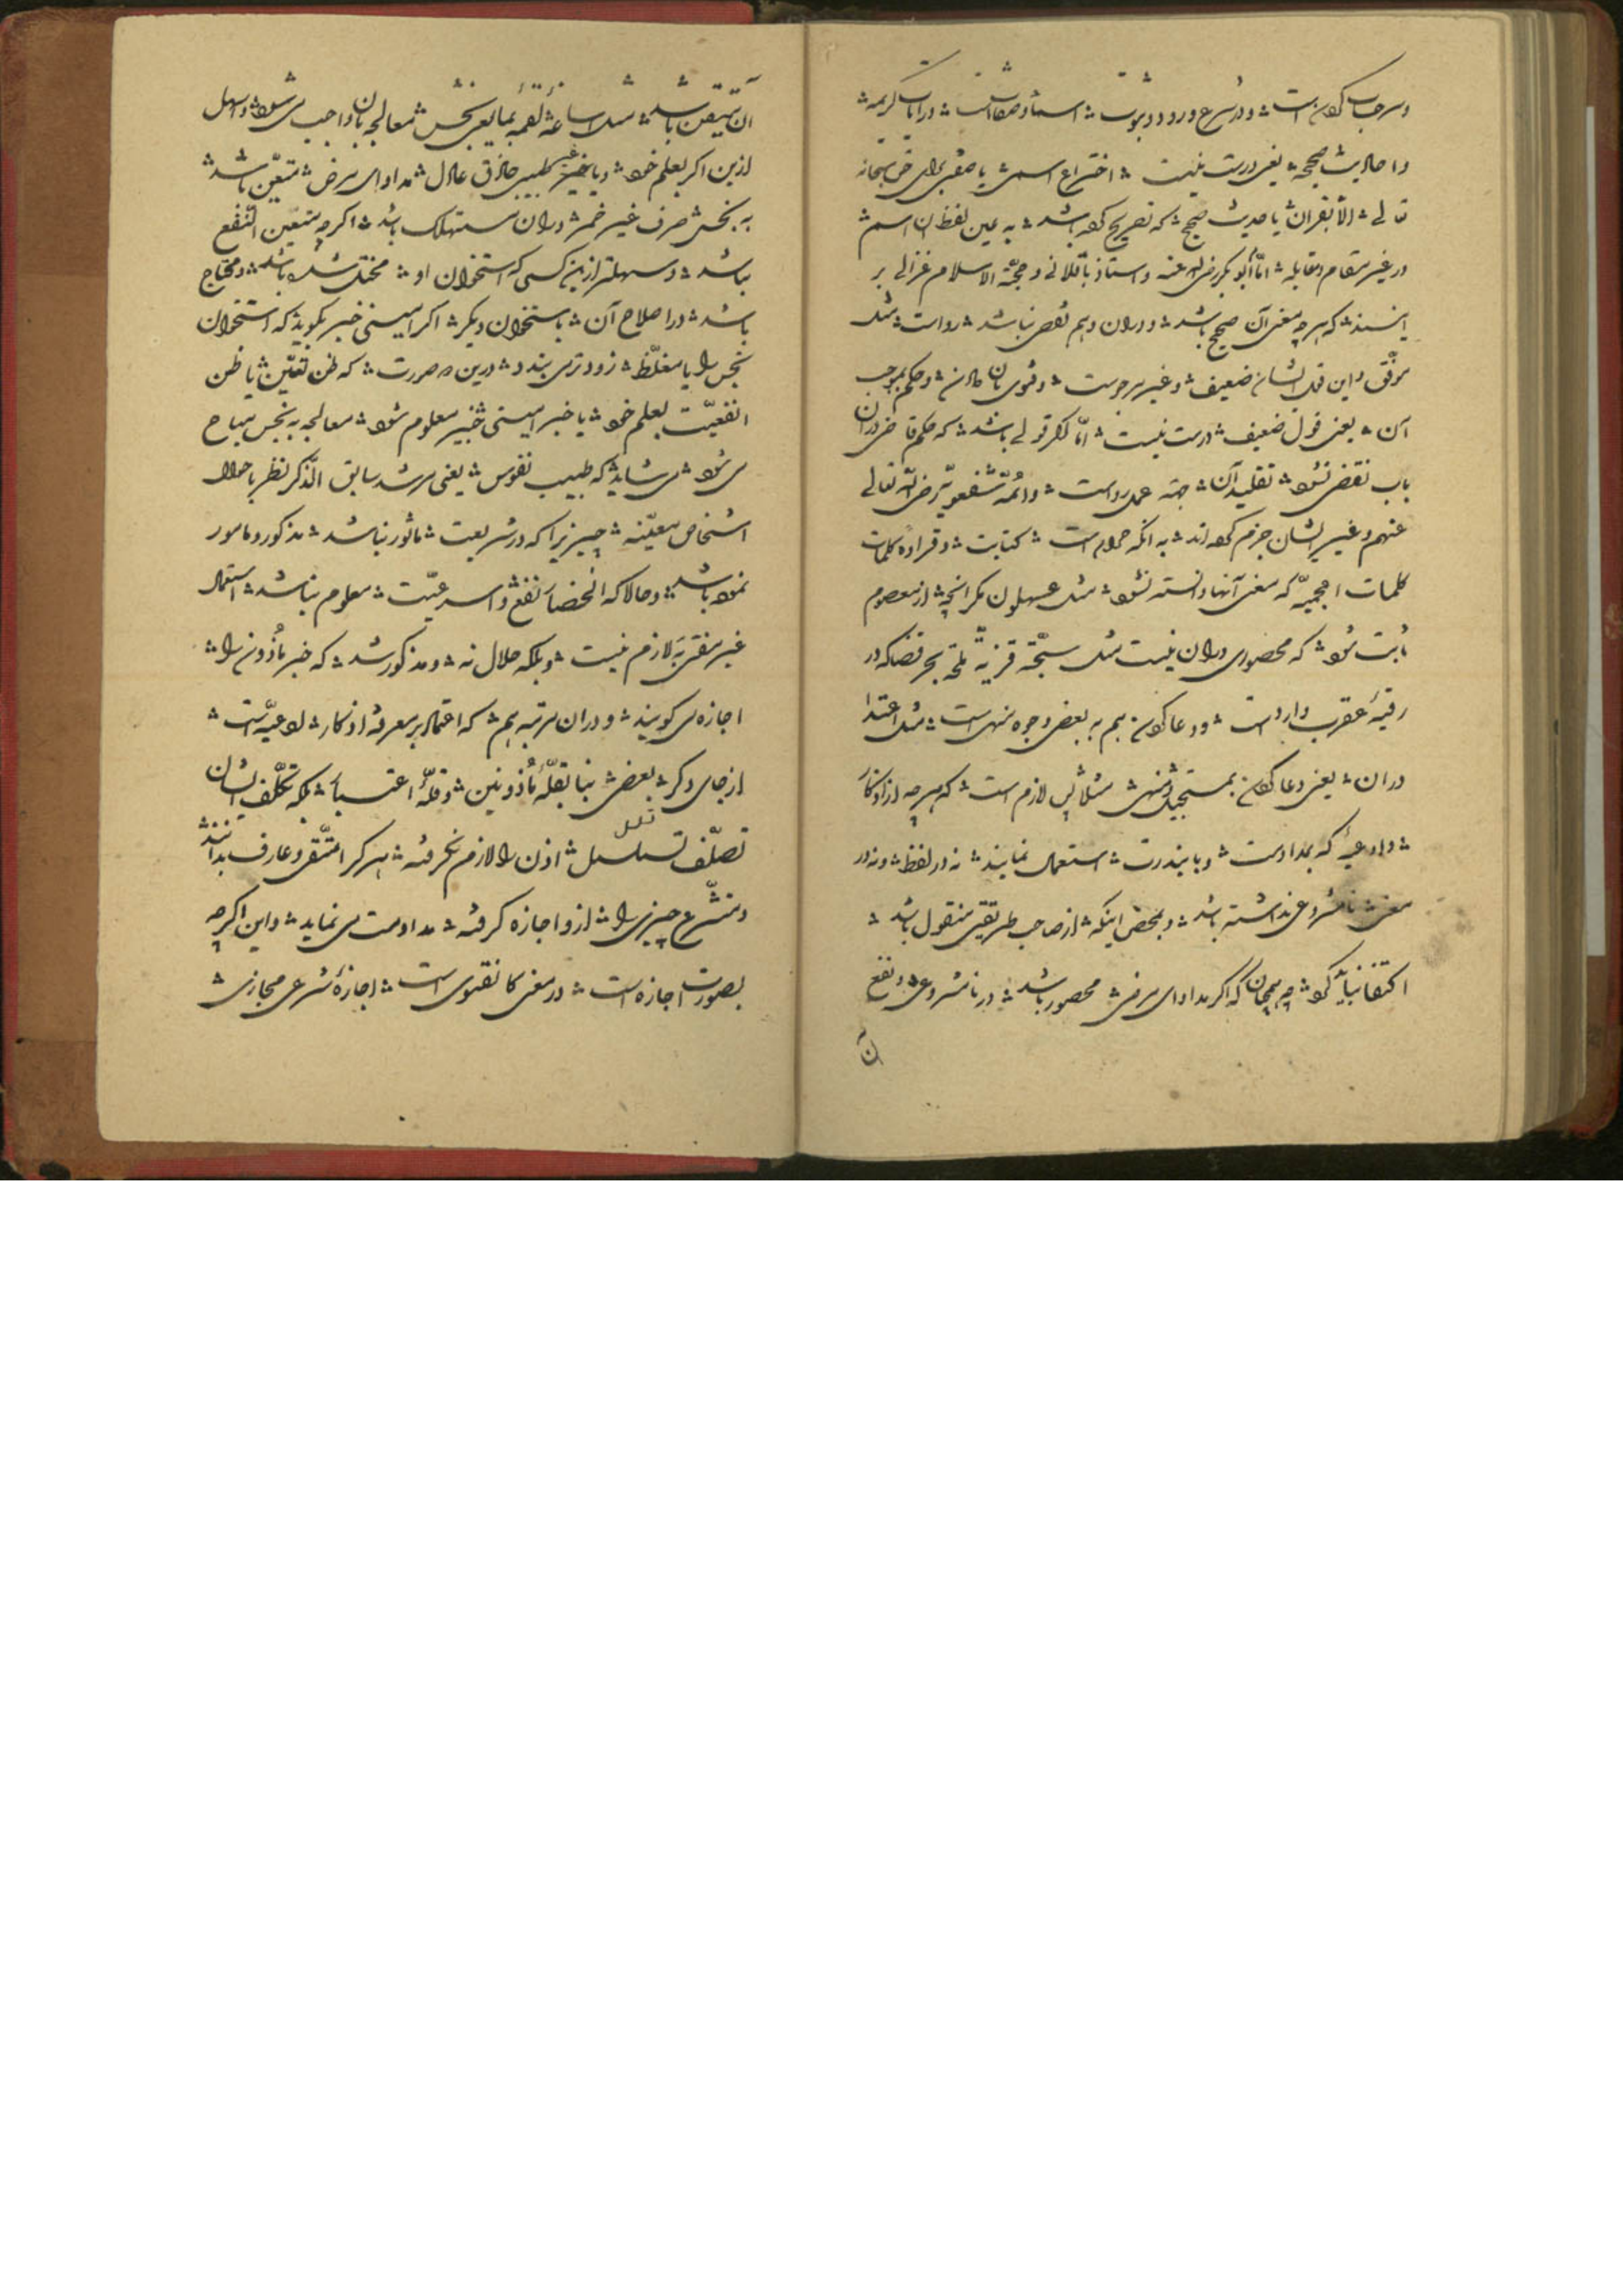 و در شرع ورود و ثبوت اسما و صفاتست در آیات کریمه
و احادیث صحیحه یعنی درست نیست اختراع اسمی یا صفتی برای حق سبحانه
تعالی الا بقران یا حدیث صحیح که تصریح کرده باشد به عین لفظ ان اسم
در غیر مقام و مقابله امّا ابو بکر رضی الله عنه و استاذ باقلانی و حجّة الاسلام غزالی بر
اینند که هرچه معنی آن صحیح باشد و دران وهم نقص نباشد رواست مثل
و این قول ایشان ضعیف و غیر مرجوست و فتوی بان دادن و حکم بموجب
آن یعنی قول ضعیف درست نیست امّا اگر قولی باشد که حکم قاضی دران
باب نقض نشود تقلید آن جهته عمل رواست و ائمّه شفعویّه رضی الله تعالی
عنهم و غیر ایشان جزم کرده اند به انکه حرام است کتابت و قراءه کلمات
کلمات اعجمیّه که معنی آنها دانسته نشود مثل عسهلون مکر انچه از معصوم
ثابت شود که محصوری دران نیست مثل سجّة قرنیّة ملحة بحر قفطا که در
رقیهٔ عقرب وارداست و دعا کردن هم به بعض وجوه منهی است مثل اعتدا
دران یعنی دعا کردن بمستحیل و منهی مثلا پس لازم است که هرچه از اذکار
و ادعیهٔ که بمداومت و یا بندرت استعمال نمایند نه در لفظ و نه در
معنی نامشروعی نداشته باشد و بمحض اینکه از صاحب طریقی منقول باشد
اکتفا نباید کرد چه همچنان که اکر مداوای مرض محصور باشد در نامشروعی و نفع
ان
آن متیقن باشد مثل اساغهٔ لقمه بمایعی نجس معالجه بان واجب می شود و اسهل
ازین اکر بعلم خود و یا خبر طبیبی حاذق عادل مداوای مرض متعیّن باشد
به نجس صرف غیر خمر دران مستهلک باشد اکرچه متعین النفع
نباشد و سهلتر ازین کسی که استخوان او مختل شده باشد و محتاج
باشد در اصلاح آن باستخوان دیکر اکر امینی خبر بکوید که استخوان
نجس یا مغلّظ زودتر می بندد درین صورت که ظن تعیّن یا ظن
انفعیّت بعلم خود یا خبر امینی خبیر معلوم شود معالجه به نجس مباح
می شود می شاید که طبیب نفوس یعنی مرشد سابق الذّکر نظر باحوال
اشخاص معیّنه چیزیرا که در شریعت ماثور نباشد مذکور و مامور
نموده باشد و حالا که انحصار نفع و اسرعیّت معلوم نباشد استعمال
غیر لازم نیست و بلکه حلال نه و مذکور شد که خبر ماذون را
اجازه می کویند و دران مرتبه هم که اعتماد بر معرفهٔ اذکار و ادعیّه است
از جای دکر بعضی بنا بقلّهٔ مأذونین و قلّهٔ اعتنا بلکه تکلّف ایشان
تصلّف تسلسل اذن را لازم نکرفته هر کرا متّقی و عارف بدانند
و متشرّع چیزی را ازو اجازه کرفته مداومت می نماید و این اکرچه
بصورت اجازه است در معنی کانه فتوی است اجازهٔ شرعی مجازی